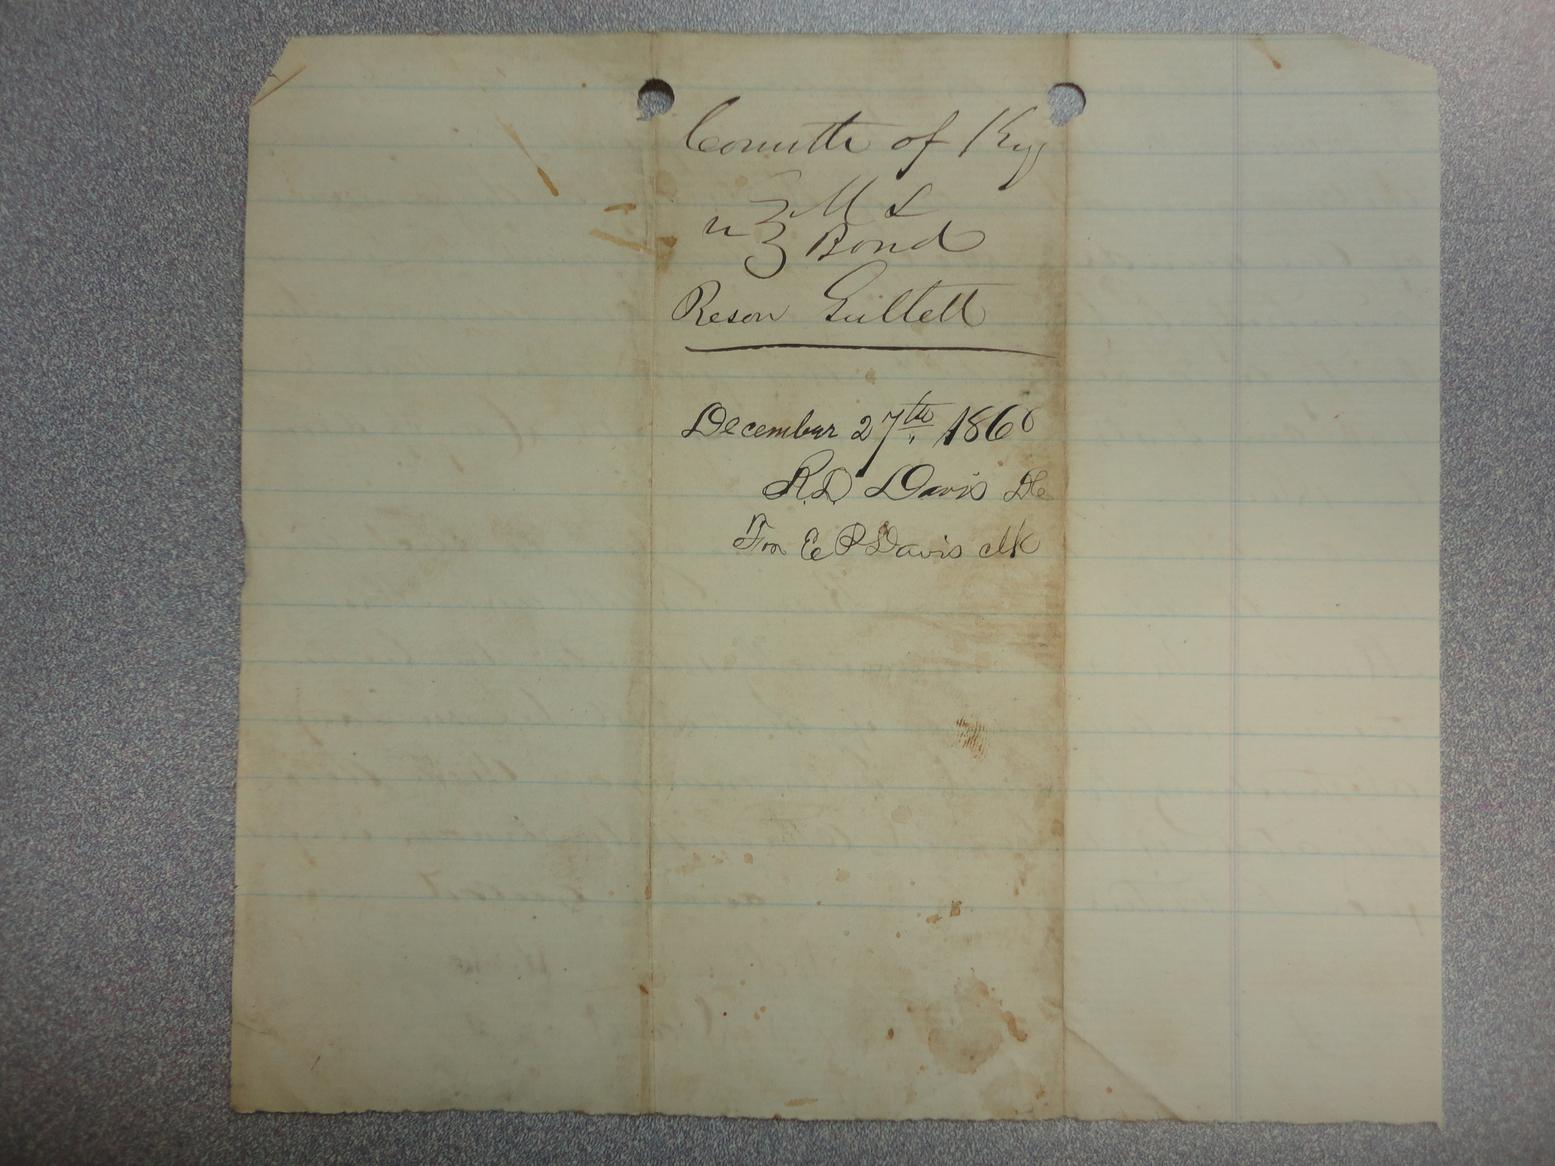 Comitth of Ky
M L
u 3 Bond
Reson Gullett
December 27th, 1860
R.D Davis DC
For E P Davis clk